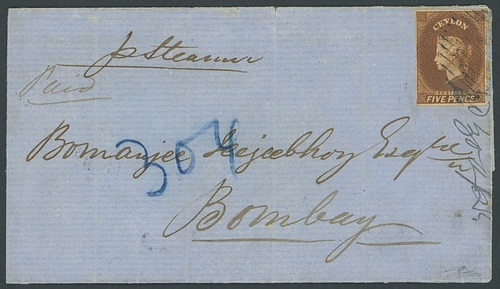 p Steamer
Paid
CEYLON
FIVE PENCE
304
Bomanjee Jejeebhoy Esqre
Bombay